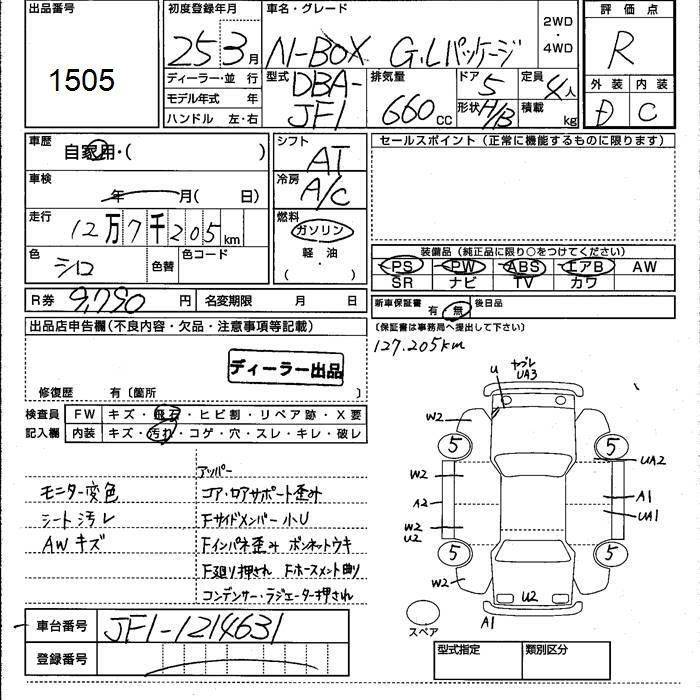 出品番号
1505
初度登録年月
25 3月
車名・グレード
N-BOX G.Lパッケージ
2WD
・
4WD
評価点
R
ディーラー・並 行
モデル年式 年
ハンドル 左・右
型式 DBA-
JF1
排気量
660cc
ドア 5
形状 H/B
定員 4人
積載 kg
外装 内装
D C
車歴
自家用・( )
シフト
AT
セールスポイント (正常に機能するものに限ります)
車検
年 月( 日)
冷房
A/C
走行
12万7千205km
燃料
ガソリン
軽・油
( )
色
シロ
色替
色コード
装備品 (純正品に限り○をつけてください)
PS PW ABS エアB AW
SR ナビ TV カワ
R券 9,790円
名変期限 月 日
新車保証書 有・無
後日品
出品店申告欄(不良内容・欠品・注意事項等記載)
(保証書は事務局へ提出して下さい)
127.205km
ディーラー出品
修復歴 有〔箇所 〕
検査員
記入欄
FW キズ・飛石・ヒビ割・リペア跡・X要
内装 キズ・汚れ・コゲ・穴・スレ・キレ・破レ
アッパー
モニター変色 コア・ロアサポート歪み
シート汚レ Fサイドメンバー小U
AWキズ Fインパネ歪み ボンネットウキ
F廻り押され Fホースメント曲り
コンデンサー・ラジエーター押され
U ヤブレ
UA3
W2
5 5
W2 UA2
A2 A1
W2 UA1
U2
5 5
W2
U2
A1
スペア
車台番号 JF1-1214631
登録番号
型式指定 類別区分